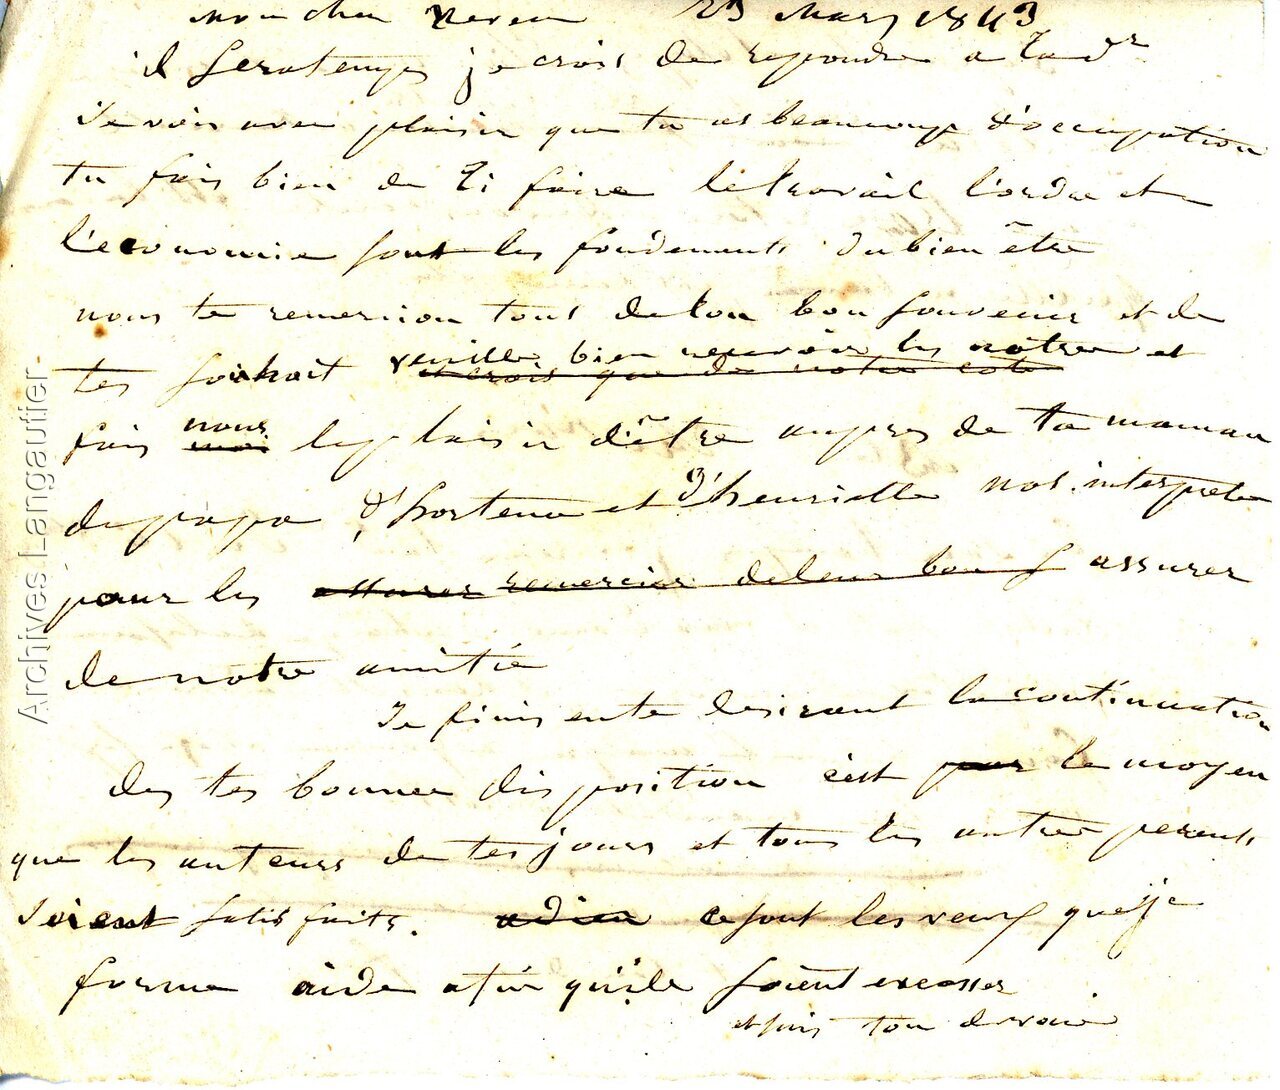 Mon cher neveu 23 Mars 1843
il sera temps je crois de repondre a ta dr
Je vois avec plaisir que tu as beaucoup d'occupation
tu fais bien de ti faire le travail l'ordre et
l'economie sont les fondements du bien être
nous te remercion tous de ton bon souvenir et de
veuille bien recevoir les nôtre et
tes souhait et crois que de notre coté
nous
fais moi le plaisir d'être aupres de ta maman
de papa d'hortence et d'henriette nos interprete
pour les assurer remercier de leur bon s assurer
de notre amitié
Je finis en te desirant la continuation
des tes bonnes disposition c'est pour le moyen
que les auteurs de tes jours et tous les autre parents
soient satisfaits. adieu ce sont les veux que je
forme aide afin qu'ils soient excesser
et fais ton devoir
Archives Langautier